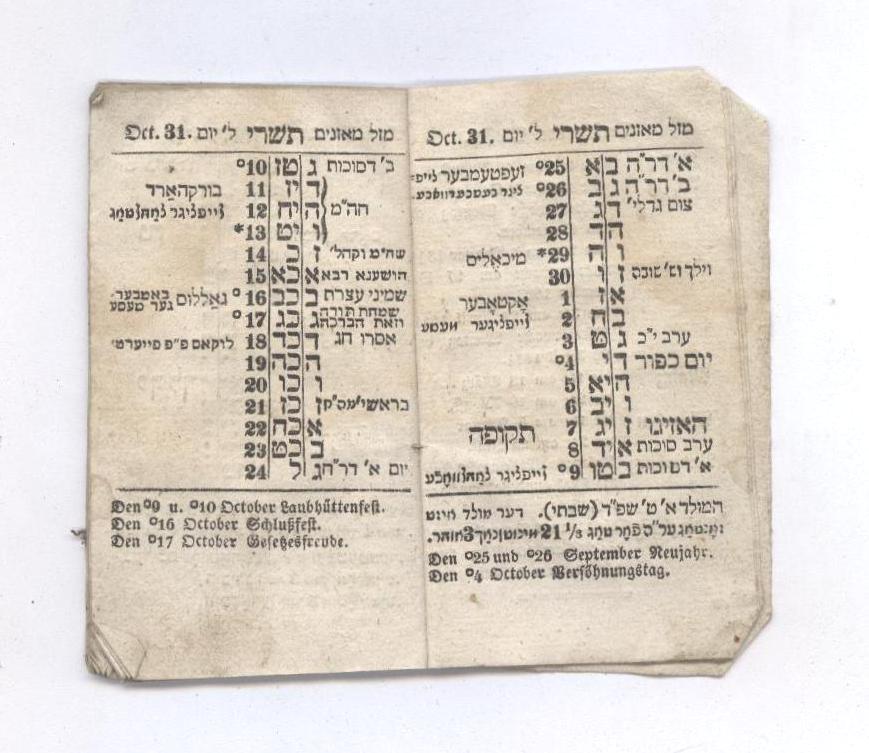 מזל מאזנים תשרי ל׳ יום Oct. 31.
א׳ דר״ה ב א °25 זעפטעמבער
ב׳ דר״ה ג ב °26
צום גדלי׳ ד ג 27
ה ד 28
ו ה *29 מיכאֶלים
וילך ז ו 30
א ז 1 אָקטאָבער
ב ח 2 לייפליגער מעסע
ערב י״כ ג ט 3
יום כפור ד י °4
ה יא 5
ו יב 6
האזינו ז יג 7 תקופה
ערב סוכות א יד 8
א׳ דסוכות ב טו °9
המולד א׳ ט׳ שפ״ד (שבתי). דער מולד
21 ⅓ 3
Den °25 und °26 September Neujahr.
Den °4 October Versöhnungstag.
מזל מאזנים תשרי ל׳ יום Oct. 31.
ב׳ דסוכות ג טז °10
ד יז 11 בורקהאַרד
חה״מ ה יח 12
ו יט *13
ז כ 14
הושענא רבא א כא 15
שמיני עצרת ב כב °16 גאַללוס
שמחת תורה
וזאת הברכה ג כג °17
אסרו חג ד כד 18 לוקאס פ״פ פייערט׳
ה כה 19
ו כו 20
בראשי׳ ז כז 21
א כח 22
ב כט 23
יום א׳ דר״ח ג ל 24
Den °9 u. °10 October Laubhüttenfest.
Den °16 October Schlußfest.
Den °17 October Gesetzesfreude.